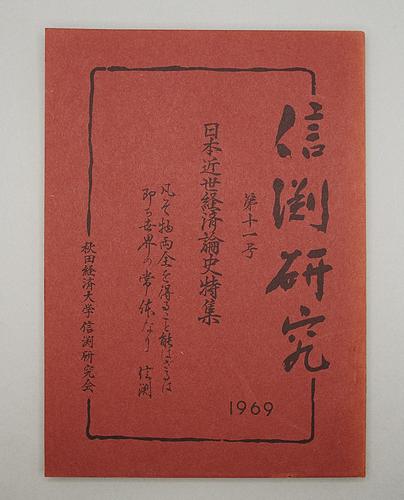 信渊研究
第十一号
日本近世経済論史特集
凡そ物両全を得ること能はざるは
即ち世界の常体なり 信渊
秋田経済大学信渊研究会
1969